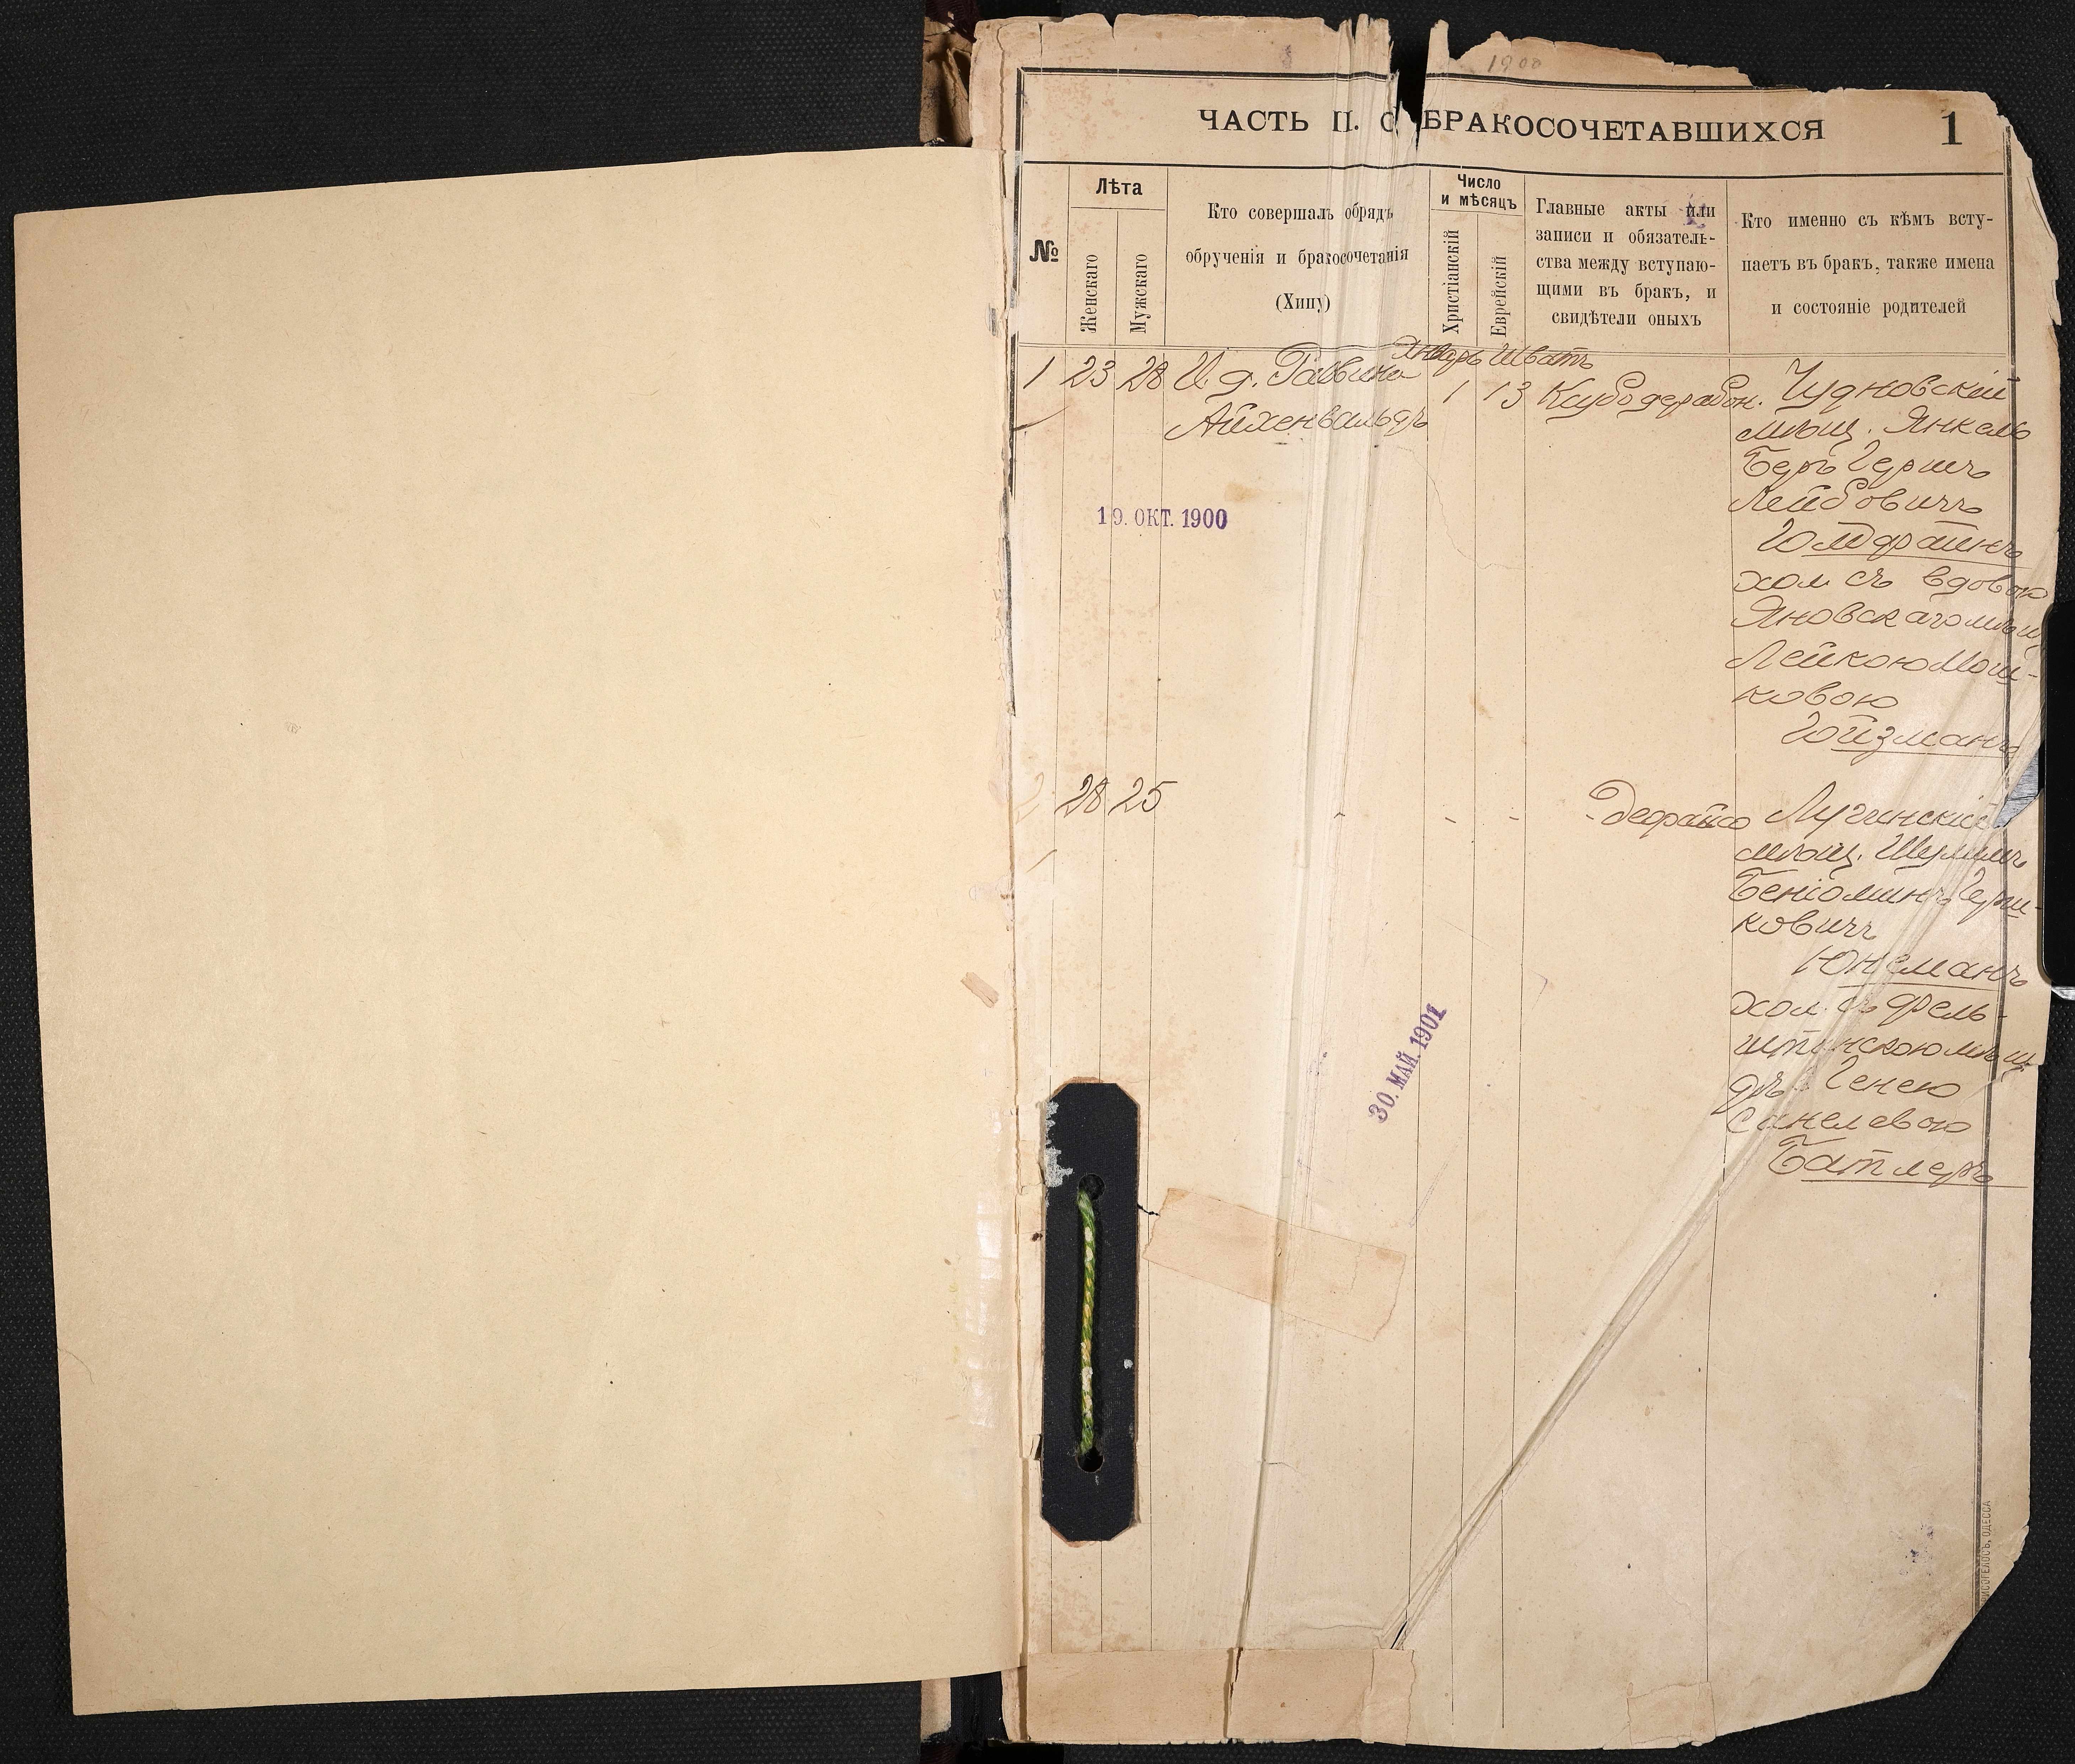 1900
ЧАСТЬ II. О БРАКОСОЧЕТАВШИХСЯ
1
№
Лѣта
Женскаго
Мужскаго
Кто совершалъ обрядъ
обрученія и бракосочетанія
(Хипу)
Число
и мѣсяцъ
Христіанскій
Еврейскій
Главные акты или
записи и обязатель-
ства между вступаю-
щими въ бракъ, и
свидѣтели оныхъ
Кто именно съ кѣмъ всту-
паетъ въ бракъ, также имена
и состояніе родителей
Январь Шватъ
1 23 28 И. д. Раввина
Айхенвальдъ
1 13
Чудновскій
мѣщ. Янкель
Беръ Герш
Лейбовичъ
хол. съ вдовою
Яновскаго мѣщ.
Лейкою Мош-
ковою
19. ОКТ. 1900
2 28 25
Лугинскій
мѣщ. Шулимъ
Беніоминъ Герш-
ковичъ
Юкеманъ
хол. съ Фель-
штинскою мѣщ.
Генею
Санелевою
Батлеръ
30. МАЙ. 1901
ОДЕССА